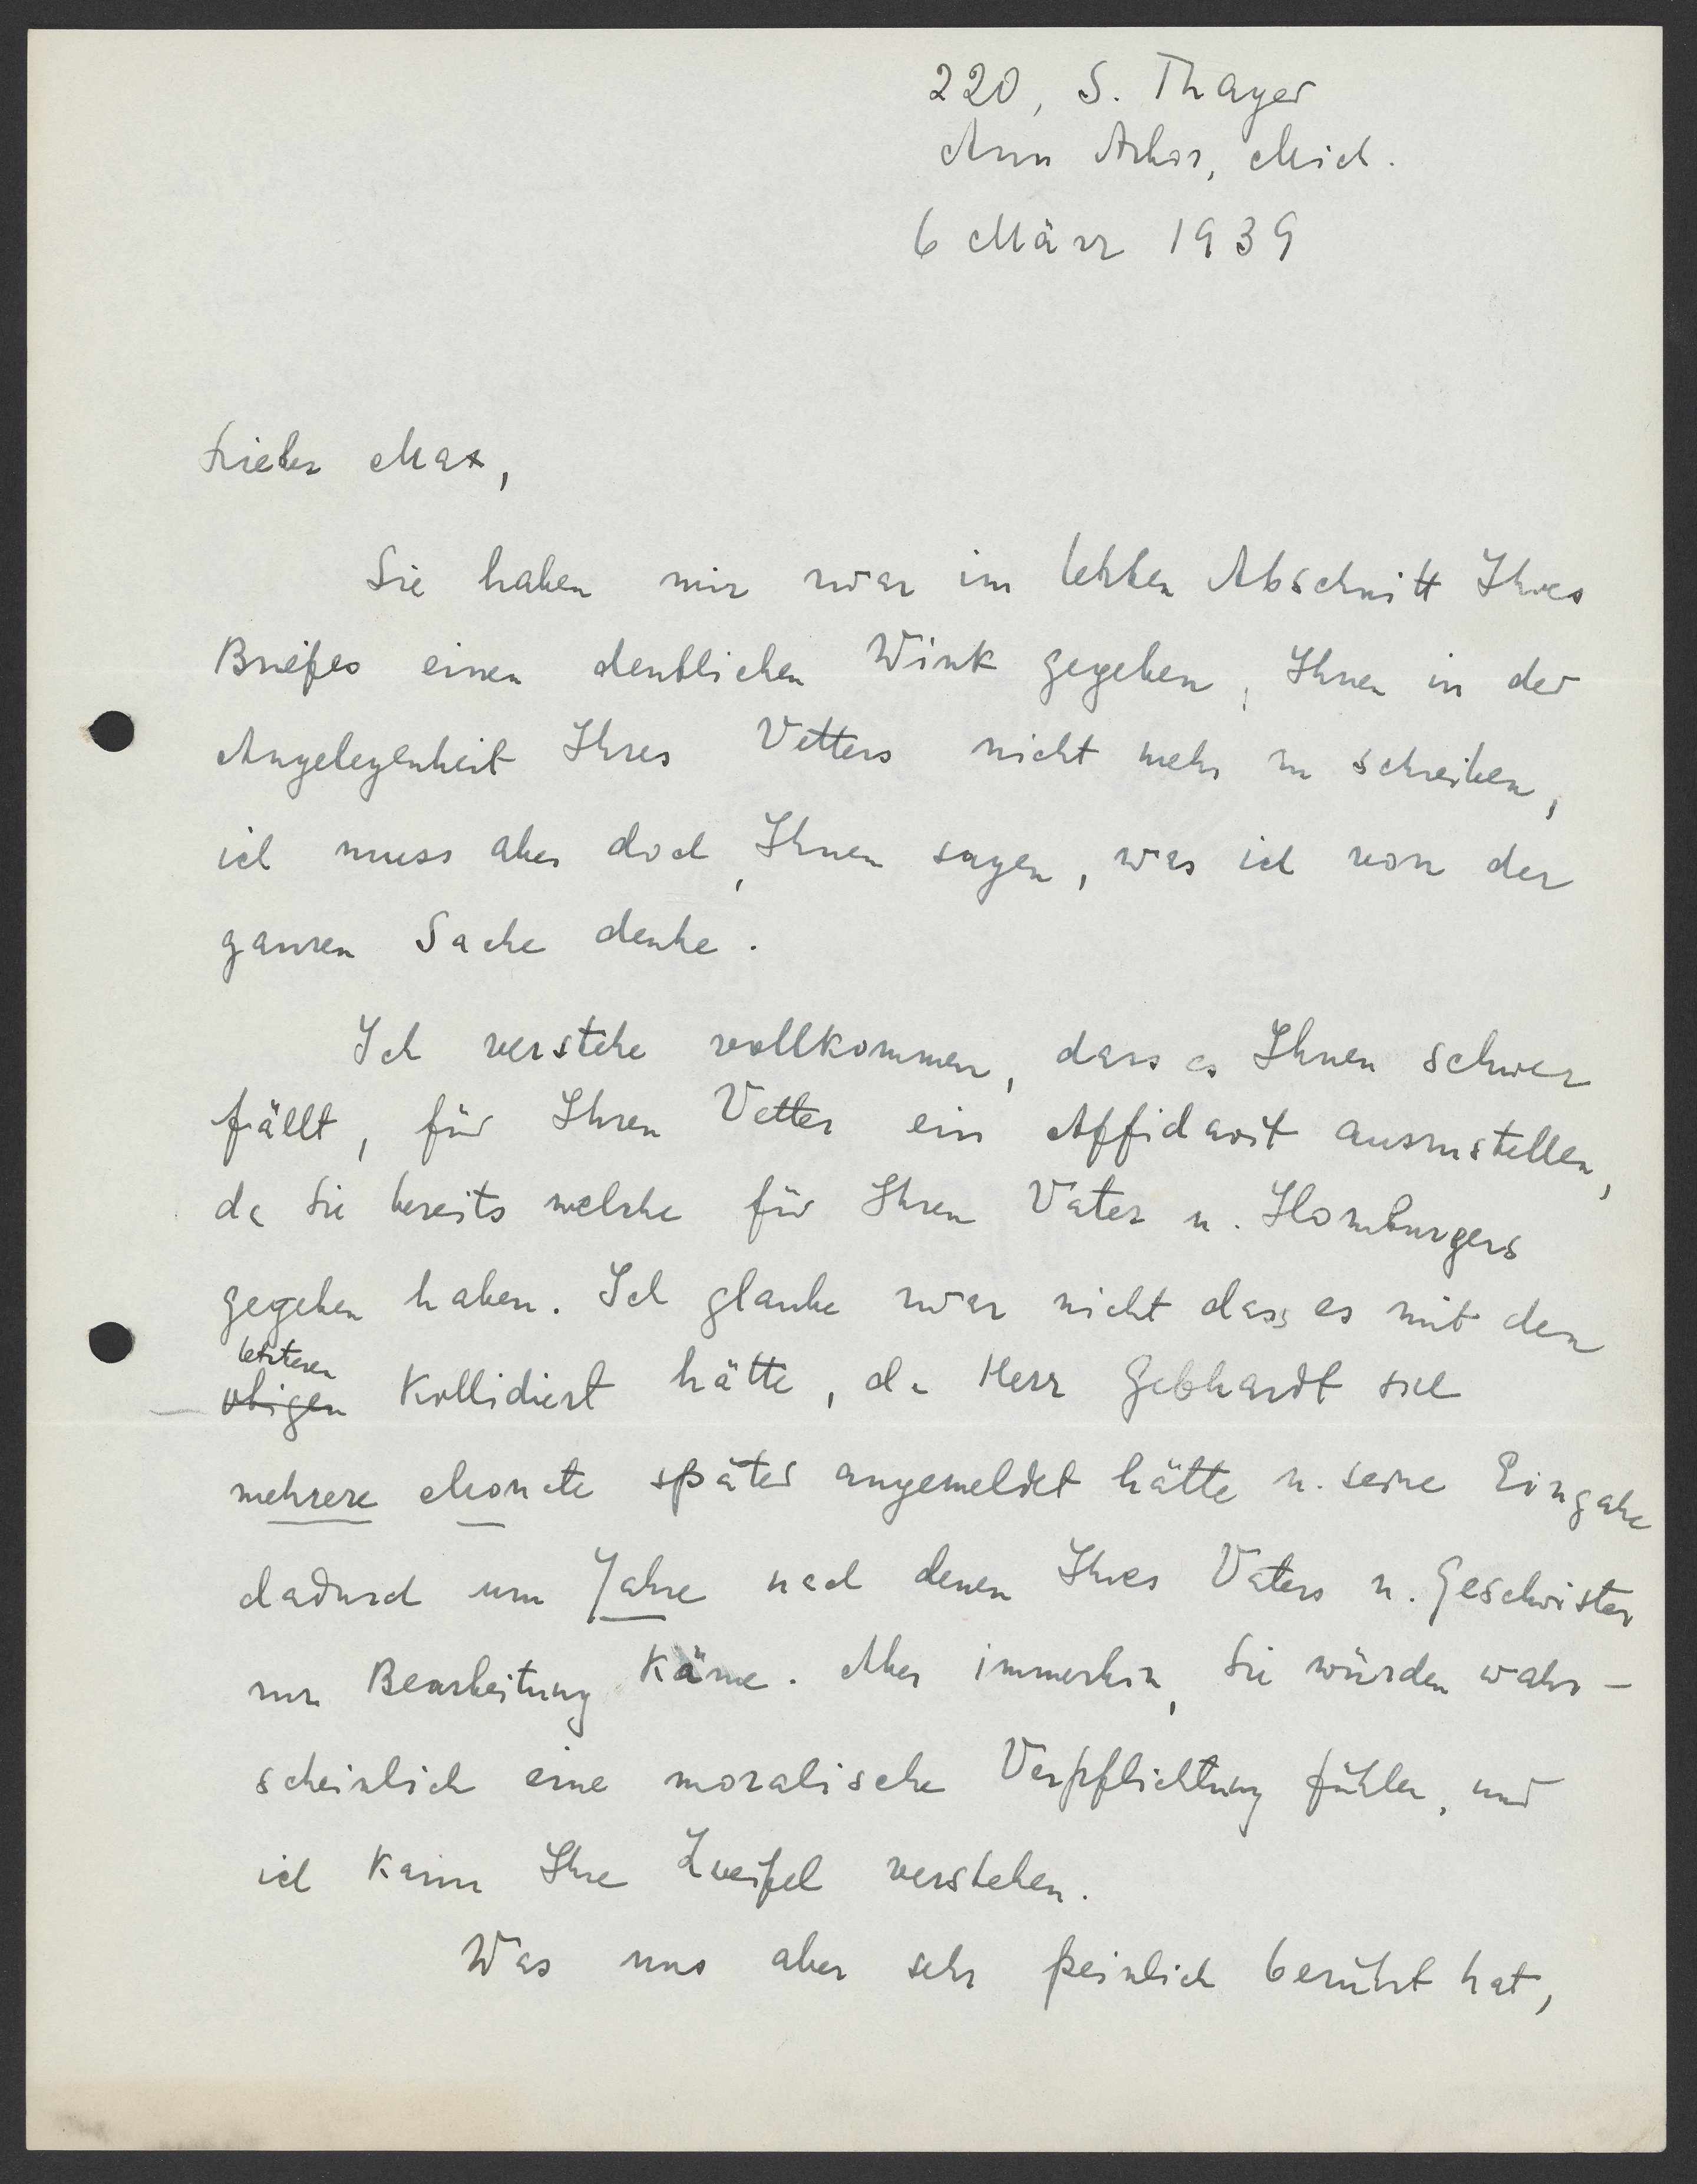 220, S. Thayer
Ann Arbor, Mich.
6 März 1939
Lieber Max,
Sie haben mir zwar im letzten Abschnitt Ihres
Briefes einen deutlichen Wink gegeben, Ihnen in der
Angelegenheit Ihres Vetters nicht mehr zu schreiben,
ich muss aber doch, Ihnen sagen, was ich von der
ganzen Sache denke.
Ich verstehe vollkommen, dass es Ihnen schwer
fällt, für Ihren Vetter ein Affidavit auszustellen,
da Sie bereits welche für Ihren Vater u. Homburgers
gegeben haben. Ich glaube zwar nicht dass es mit den
letzteren
obigen kollidiert hätte, da Herr Gebhardt sich
mehrere Monate später angemeldet hätte u. seine Eingabe
dadurch um Jahre nach denen Ihres Vaters u. Geschwister
zur Bearbeitung käme. Aber immerhin, Sie würden wahr-
scheinlich eine moralische Verpflichtung fühlen, und
ich kann Ihre Zweifel verstehen.
Was uns aber sehr peinlich berührt hat,